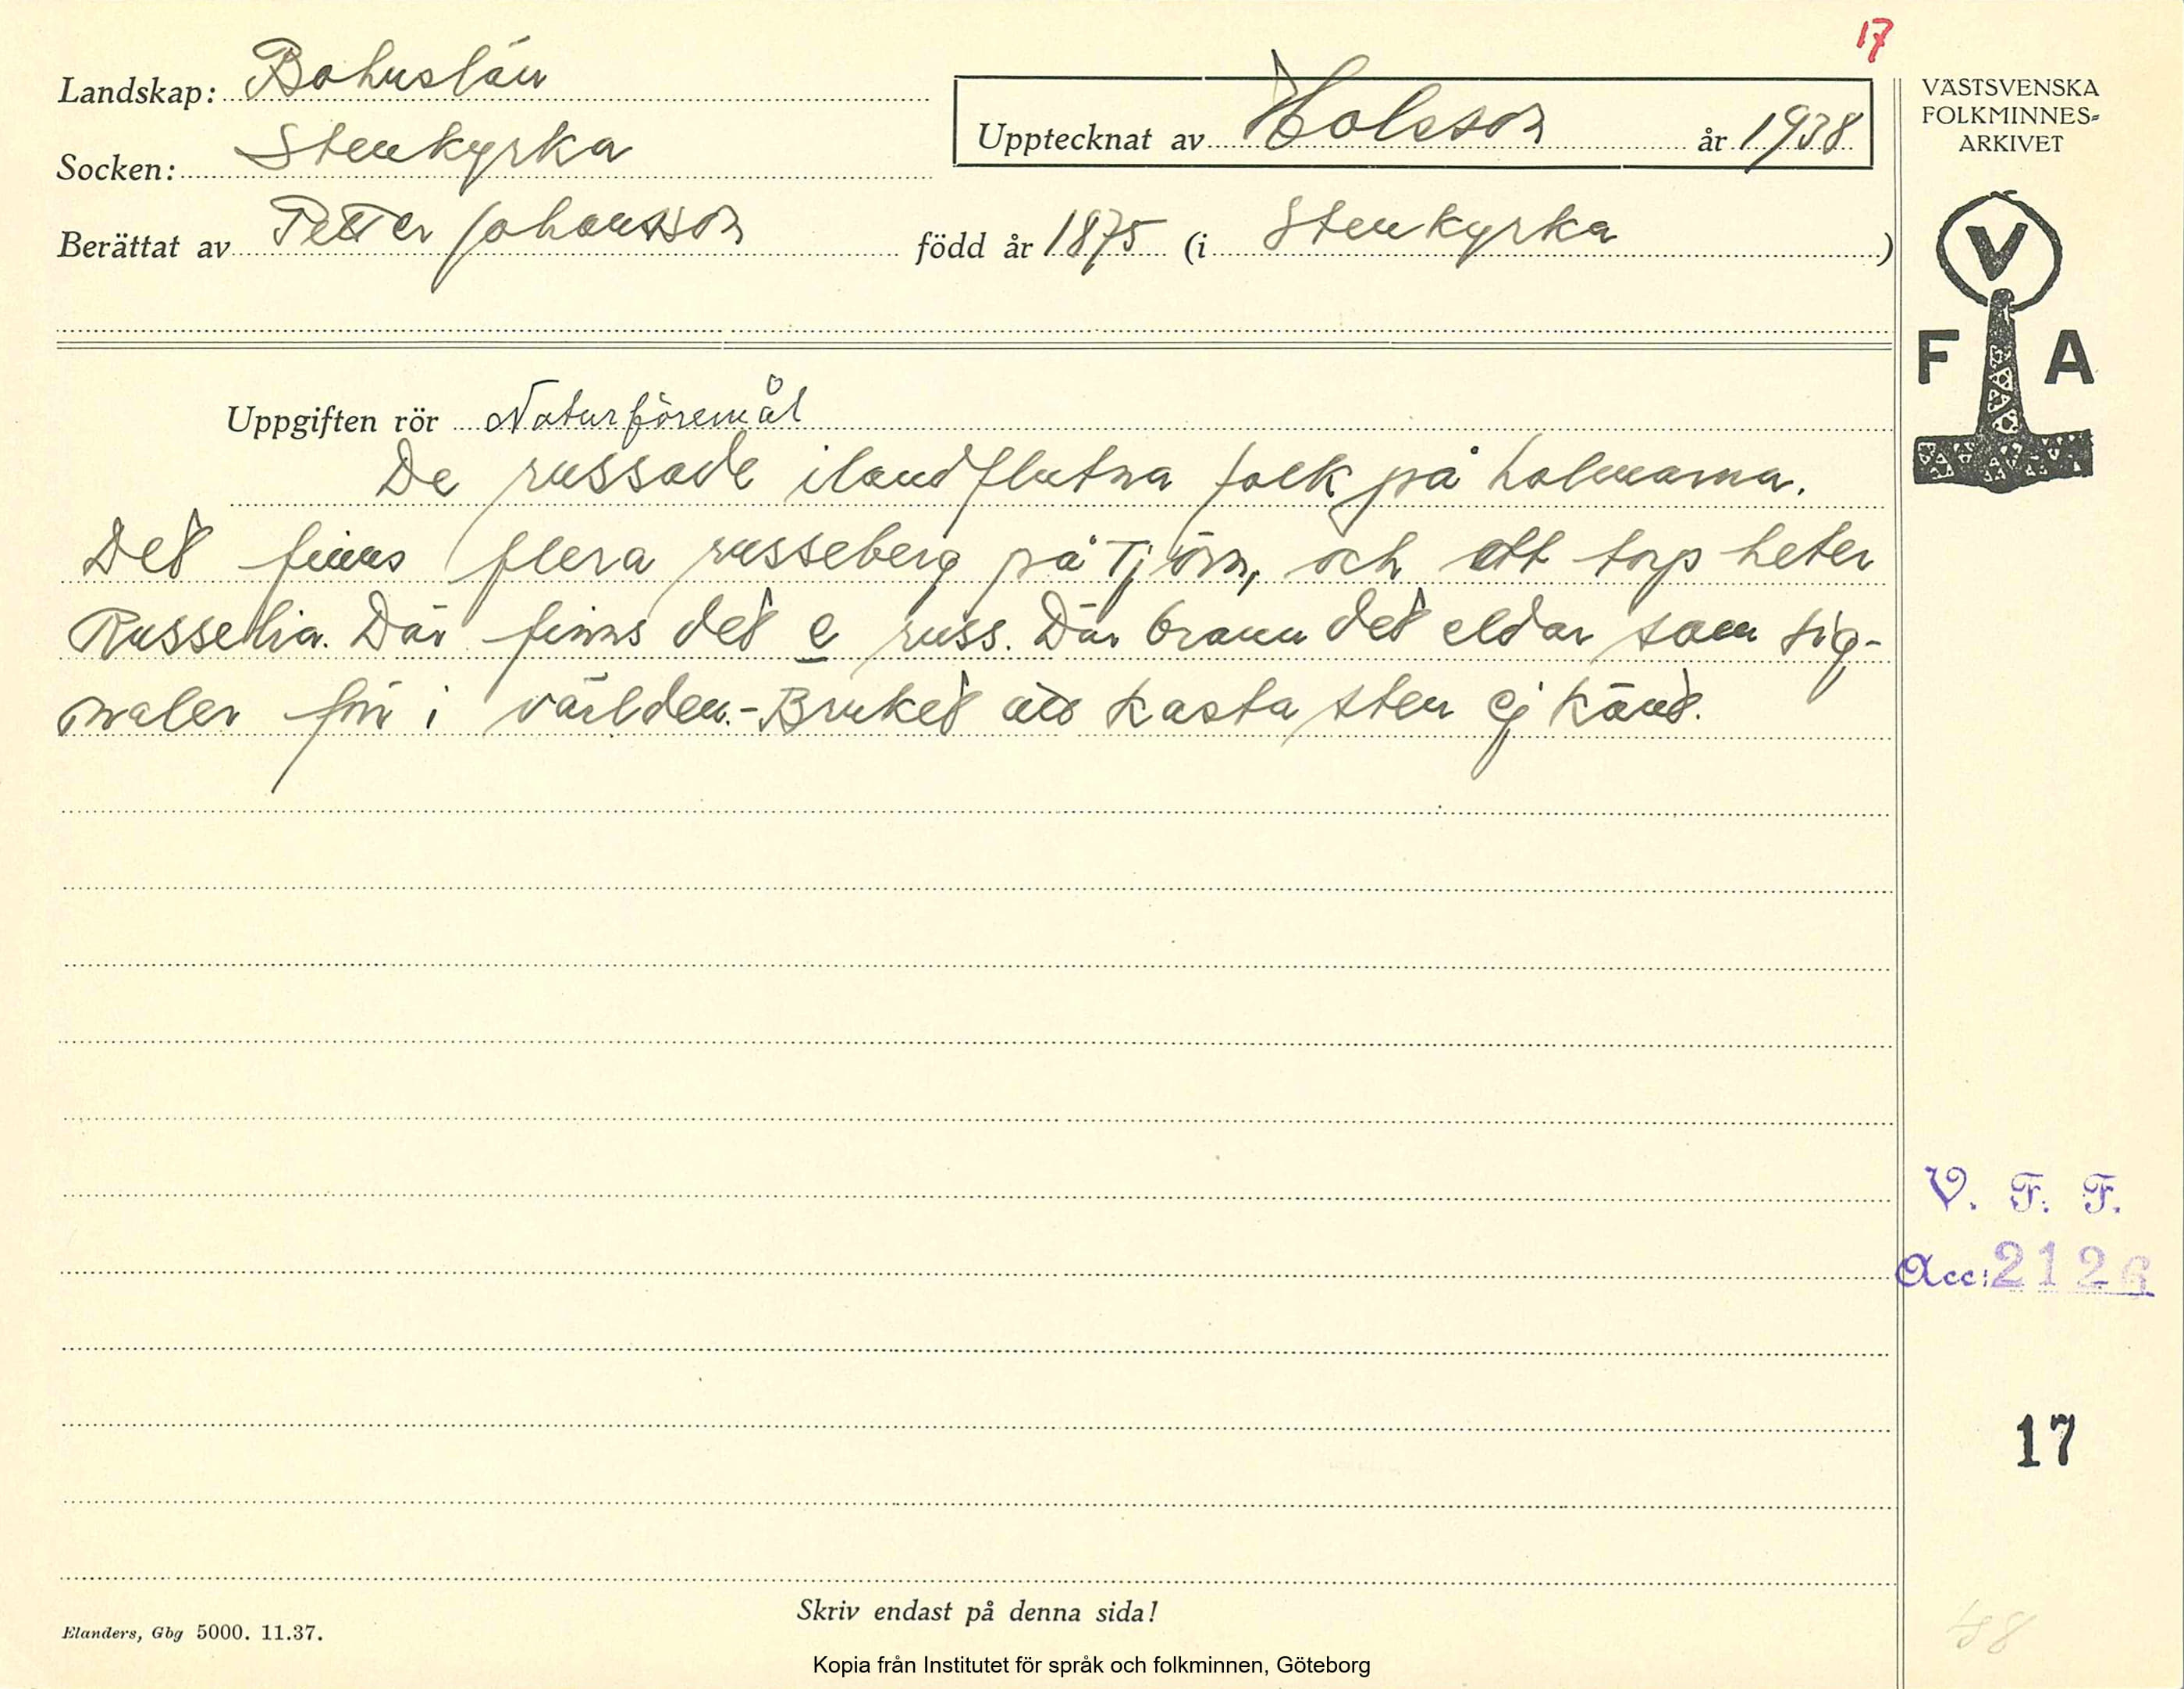 17
Landskap: Bohuslän
Socken: Stenkyrka
Upptecknat av Holsson år 1938
Berättat av Petter Johansson född år 1875 (i Stenkyrka)
VÄSTSVENSKA
FOLKMINNES-
ARKIVET
V
F A
Uppgiften rör Naturföremål
De russade ilandflutna folk på holmarna.
Det finns flera russeberg på Tjörn, och ett torp heter
Russelia. Där finns det e russ. Där brann det eldar som sig-
naler för i världen.- Bruket att kasta sten ej känt.
V. F. F.
Acc: 2126
17
Skriv endast på denna sida!
Elanders, Gbg 5000. 11.37.
Kopia från Institutet för språk och folkminnen, Göteborg